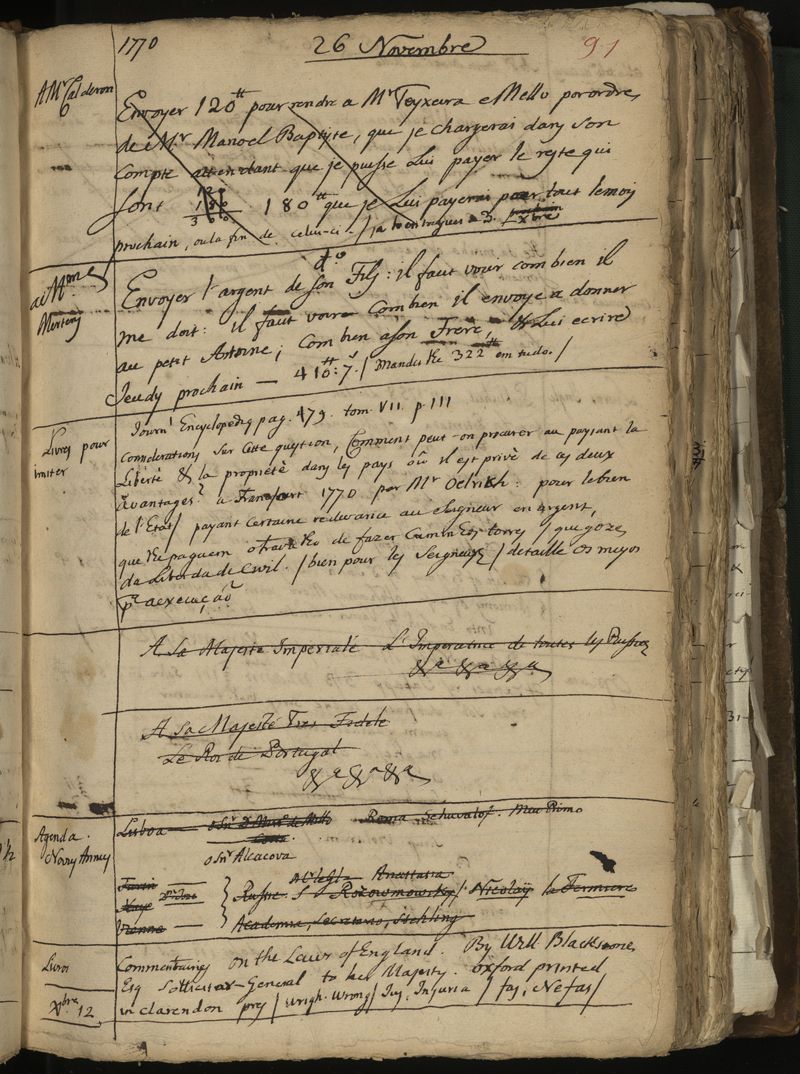 1770
26 Novembre
91
A Mr Calderon
Envoyer 120 tt pour rendre a Mr Teyxeira e Mello por ordre
de Mr Manoel Baptiste, que je chargerai dans son
Compte attendant que je puisse Lui payer le reste qui
sont 180 tt que je Lui payerai pour tout le mois
prochain, ou la fin de celui-ci. /
de Mme
Mertens
do
Envoyer l'argent de son Fils: il faut voir combien il
me doit: il faut voir Combien il envoye a donner
au petit Antoine; Combien a son Frere; & Lui ecrire
Jeudy prochain — 410 tt: 7 s. / Mandei lhe 322 tt em tudo. /
Livres pour
imiter
Journl Encyclopediq pag. 479. tom. VII. p. III
considerations sur cette question, Comment peut-on procurer au paysant la
Liberté & la propriété dans les pays où il est privé de ces deux
avantages? a Francfurt 1770 par Mr Oelrich: pour le bien
de l'Etat / payant certaine redevance au Seigneur en argent,
que lhe paguem o trabalho de fazer Caminhos, torres / que goze
da Liberdade Civil. / bien pour les Seigneurs / detaille os meyos
pa a execução
A Sa Majesté Imperiale L'Imperatrice de toutes les Russies
&a &a &a
A Sa Majesté Tres Fidele
Le Roi de Portugal
&a &a &a
Agenda.
Novy Anney
Lisboa — Roma Schuvalof. Meu Primo
o Snr Alcacova
Anastasia
Russe. Rozowmowsky / Nicolaÿ la Fermiere
Vienne — Academia, Secretario, Stehling
Livros
Commentaries on the Laws of England. By Will Blackstone,
Esq Sollicitor-General to her Majesty. Oxford printed
in clarendon pres / wrigh. Wrong / Jus, Injuria / fas, Nefas /
Xbre 12.